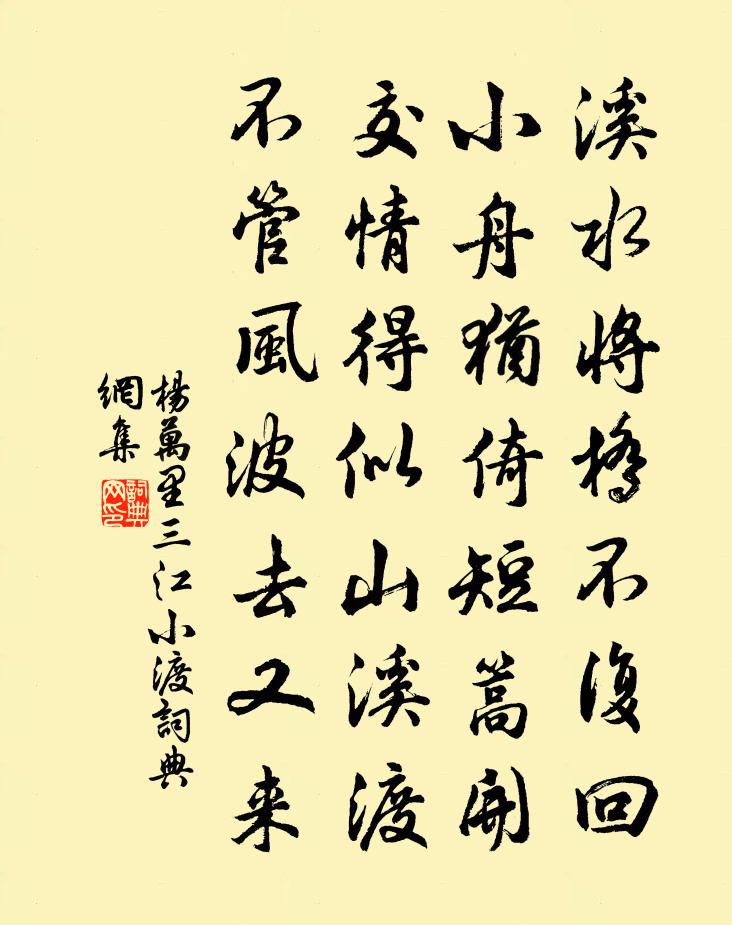 溪水將橋不復回
小舟猶倚短篙開
交情得似山溪渡
不管風波去又来
楊萬里三江小渡詞典
網集
詞典
网印